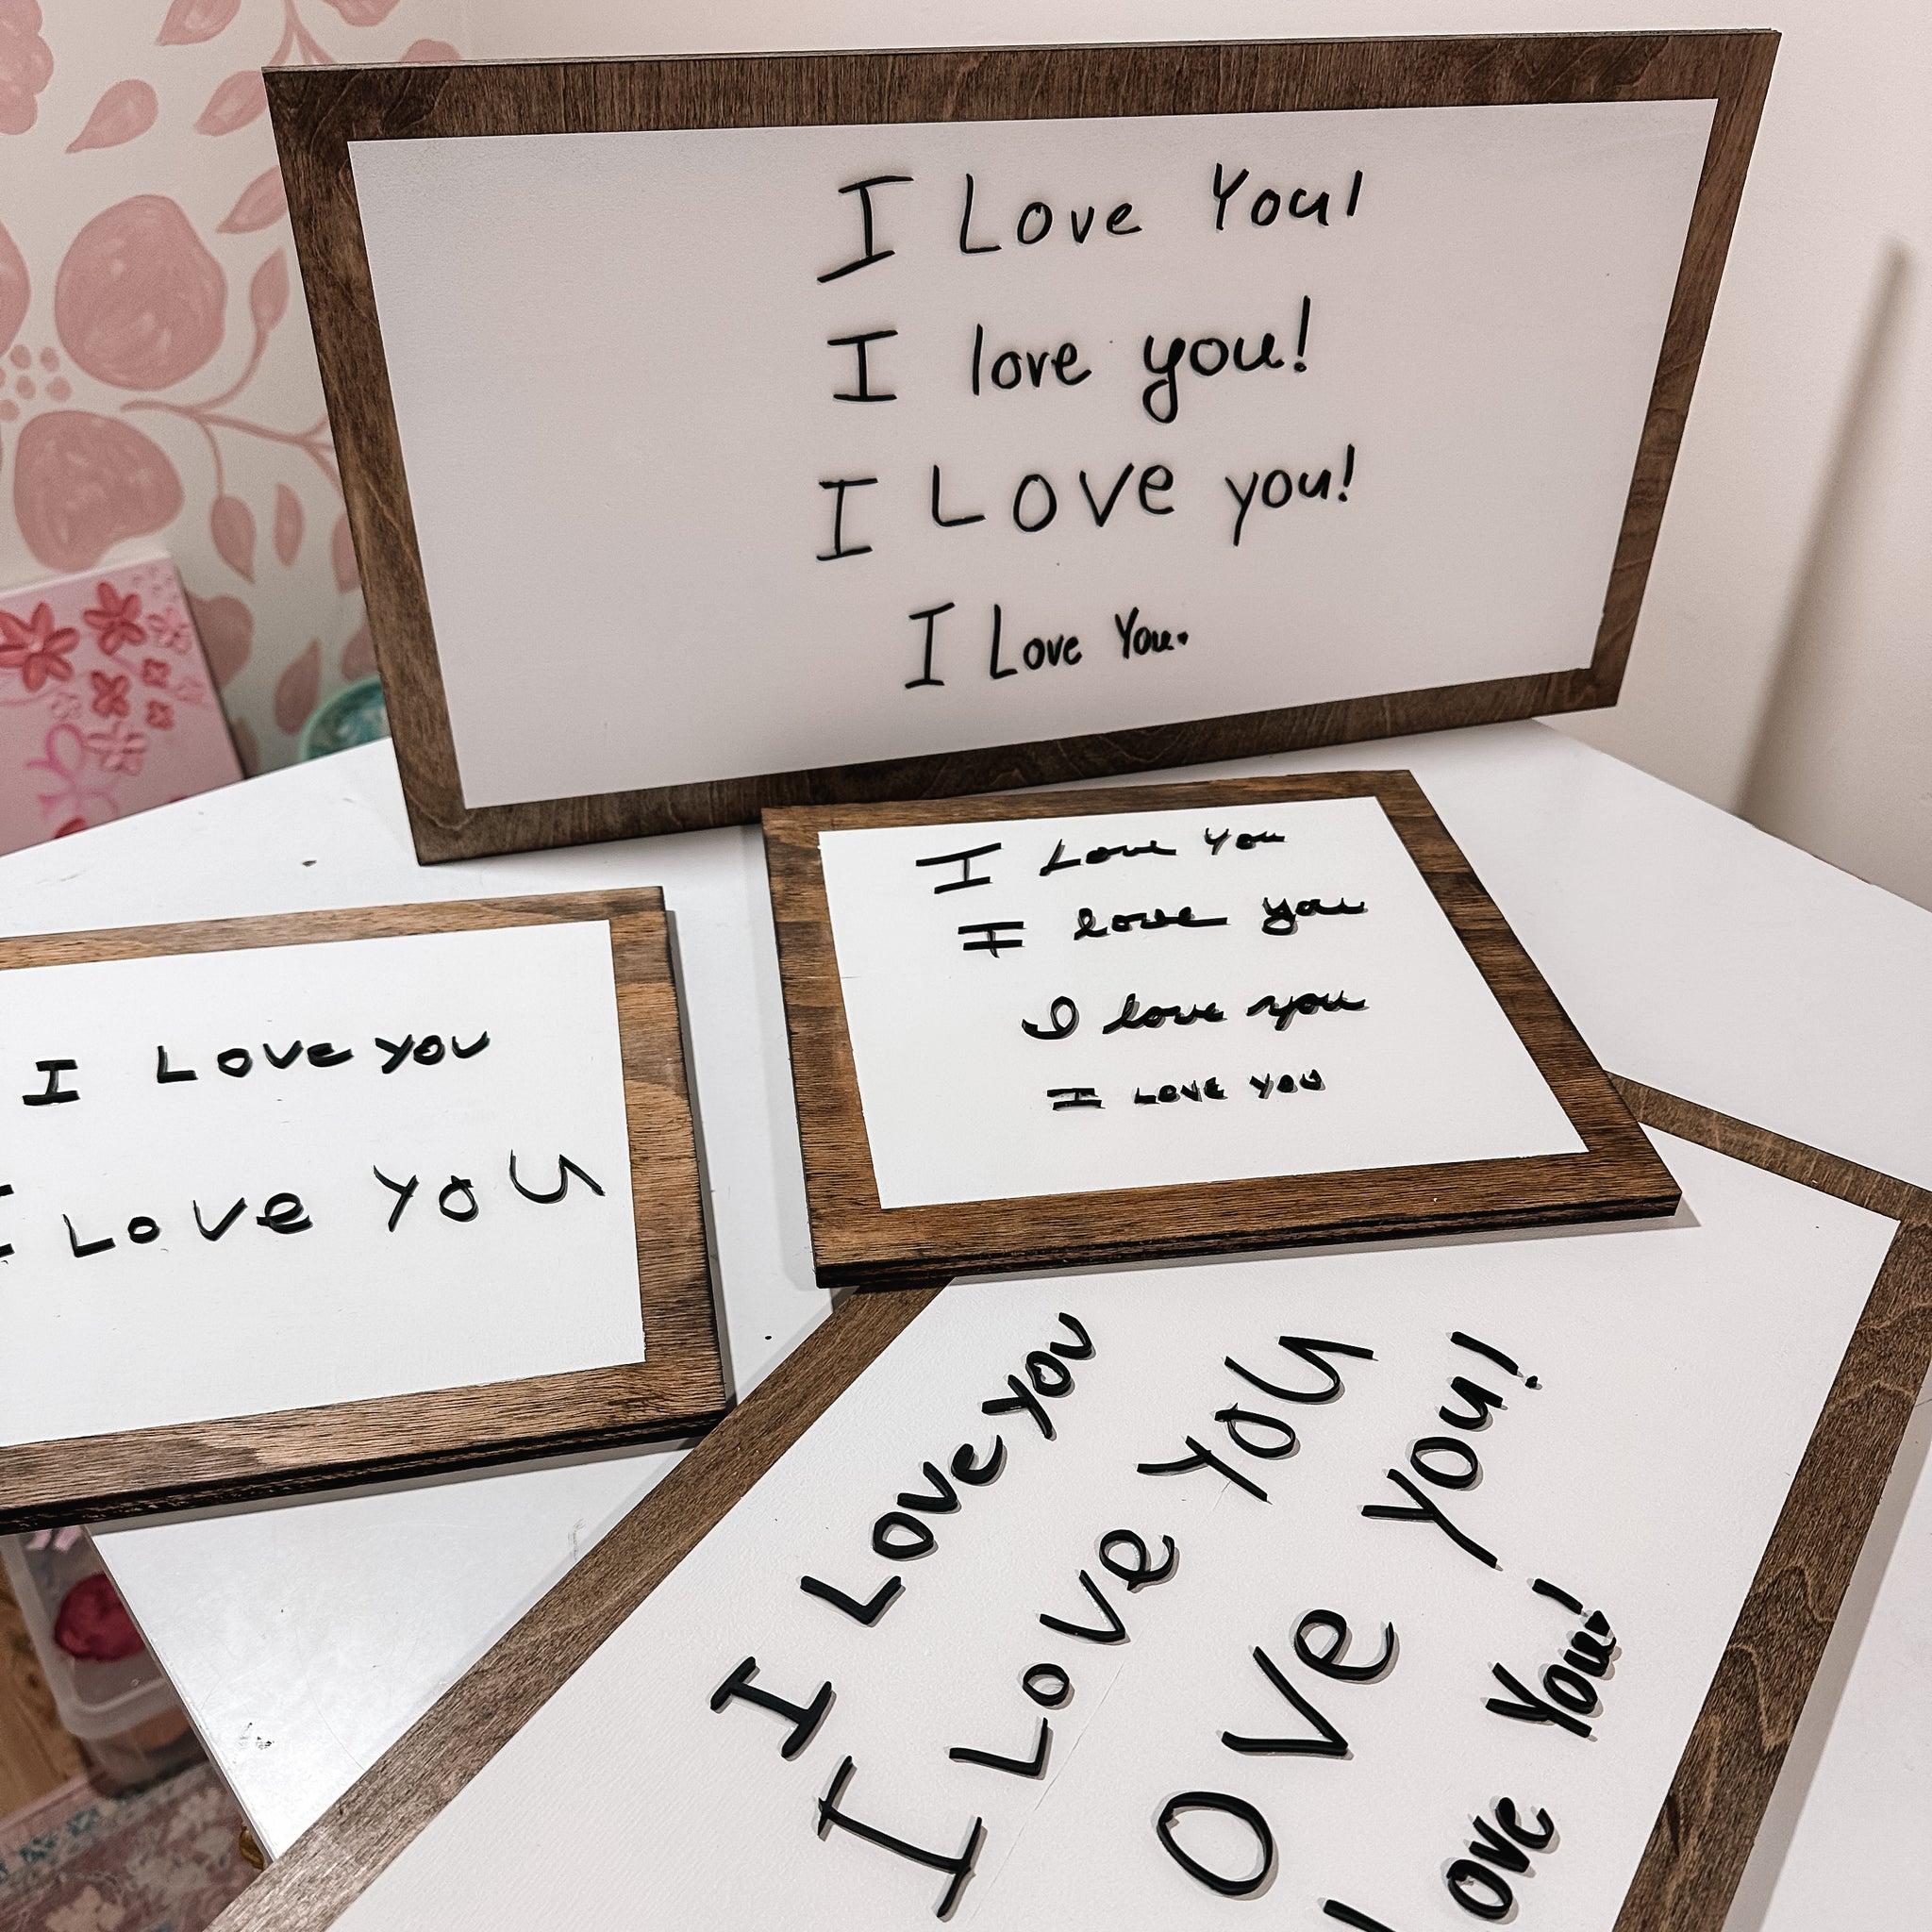 I Love You!
I love you!
I LOVe you!
I Love You.
I Love You
I love you
I love you
I LOVE YOU
I LOVe you
I LOVe YOU
I Love you
I LOVe YOU
OVe You!
Love You!